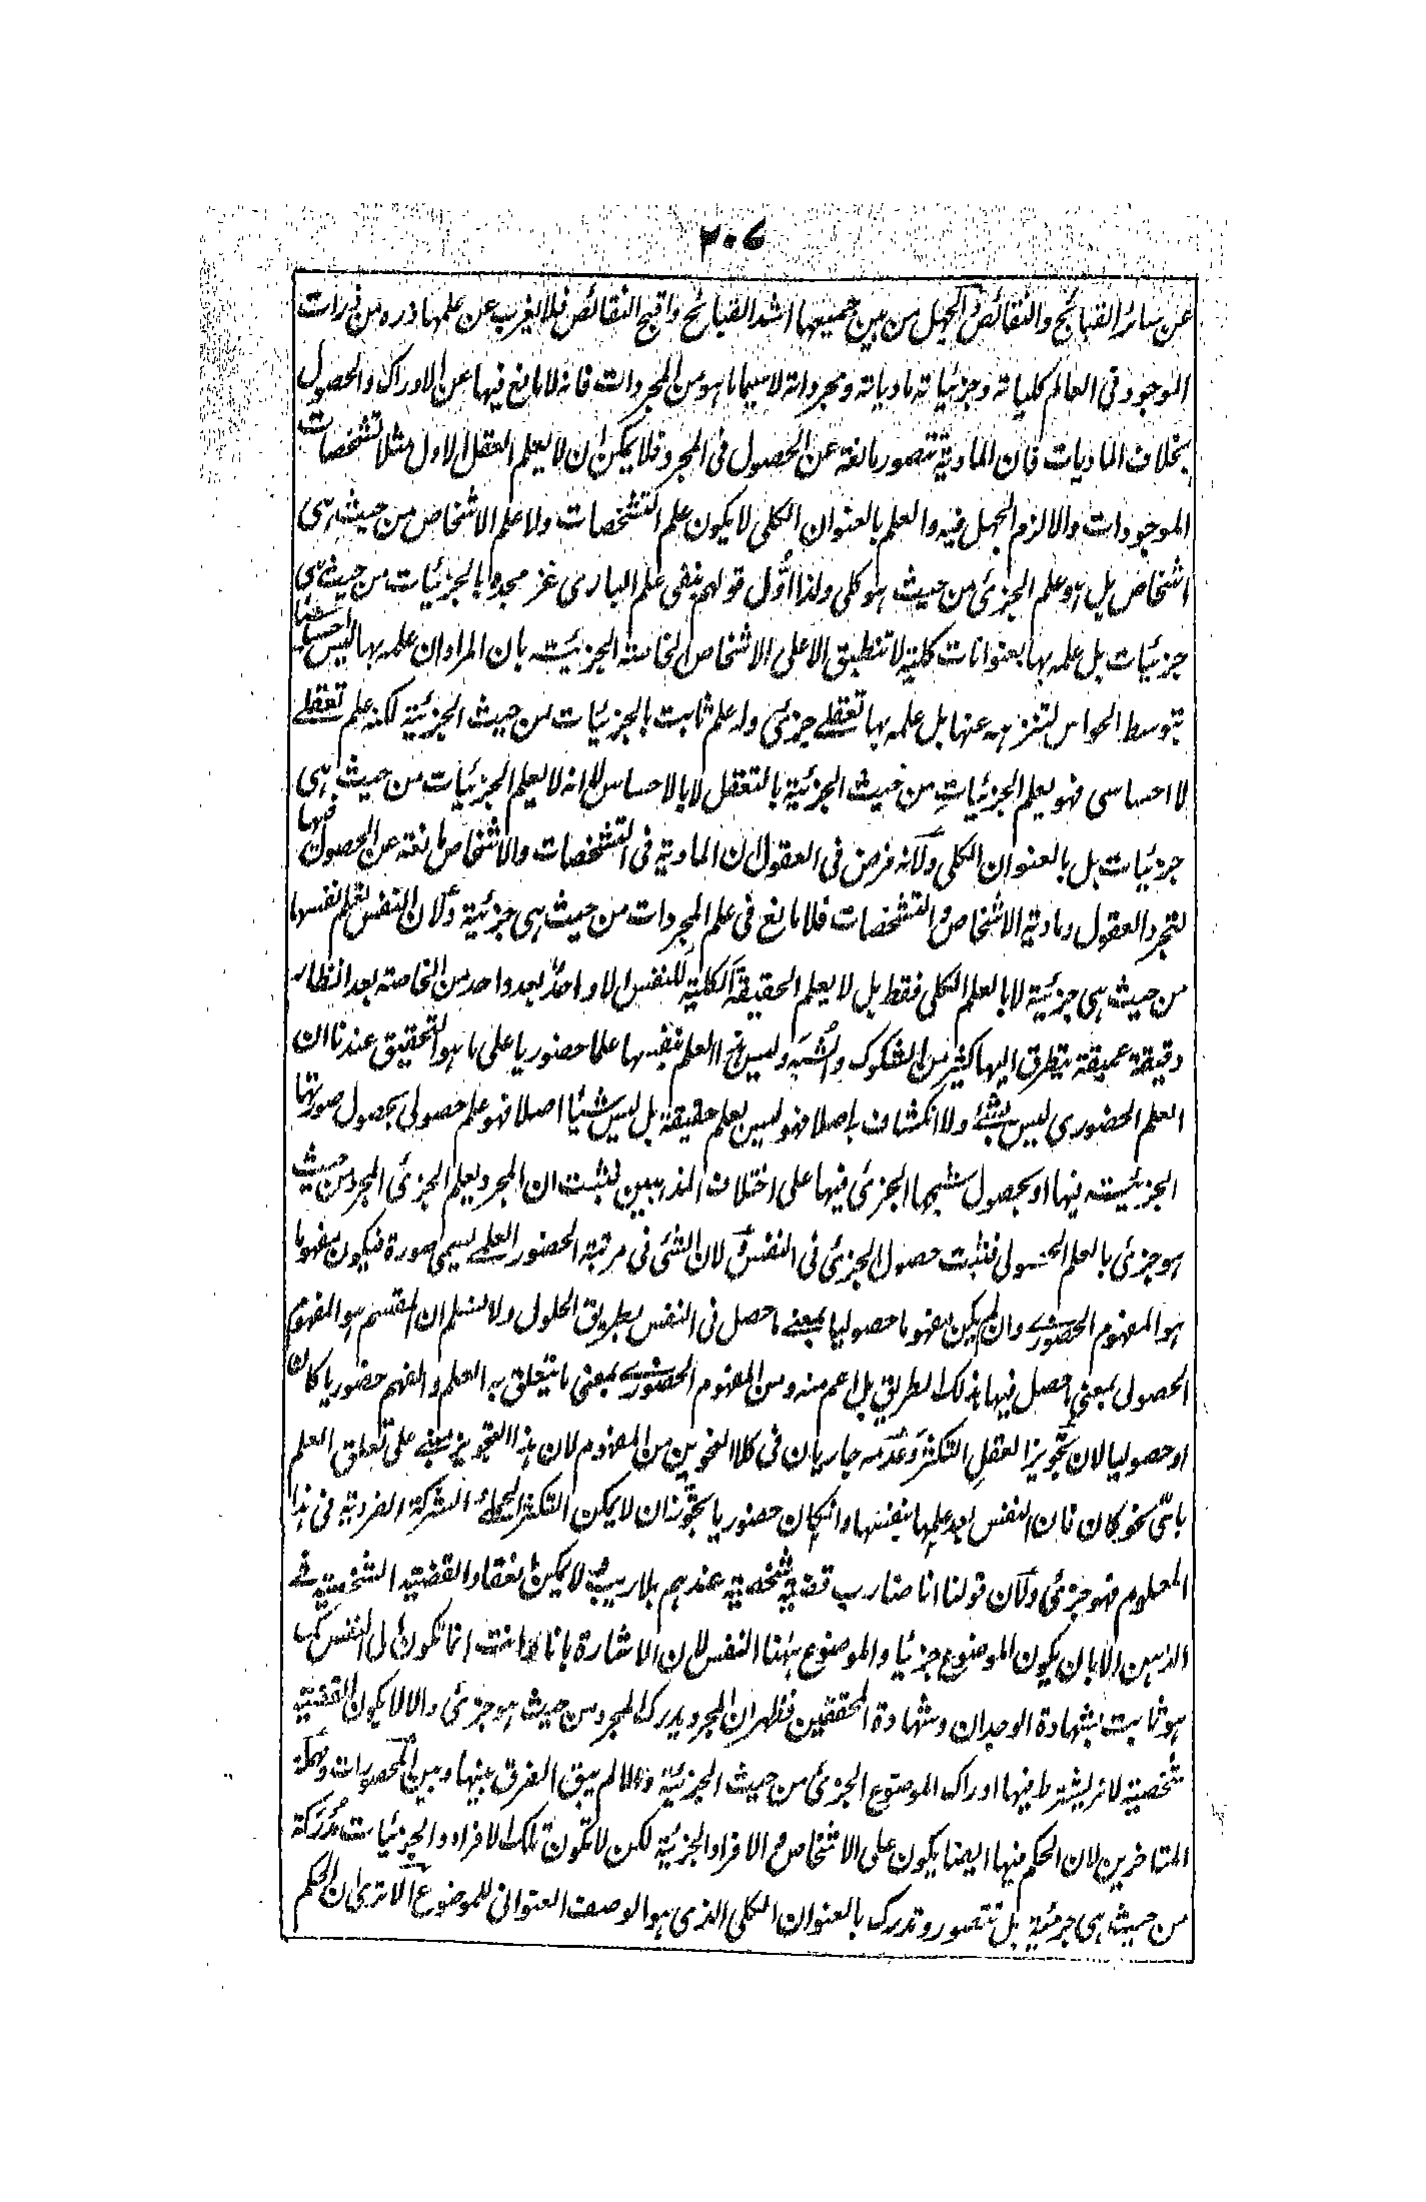 ٢٠٧
عن سائر القبائح والنقائص والجهل من بين جميعها اشد القبائح واقبح النقائص فلا يغرب عن علمها ذره من ذرات
الموجود فى العالم كلياته وجزئياته مادياته ومجرداته لاسيما ما هو من المجردات فانه لا مانع فيها عن الادراك والحصول
بخلاف الماديات فان المادية تتصور مانعة عن الحصول فى المجرد فلا يمكن ان لا يعلم العقل الاول مثلا تشخصات
الموجودات والا لزم الجهل فيه والعلم بالعنوان الكلى لا يكون علم التشخصات ولا علم الاشخاص من حيث هى
اشخاص بل هو علم الجزئى من حيث هو كلى ولذا اُوّل قولهم بنفى علم البارى عز مجده بالجزئيات من حيث هى
جزئيات بل علمه بها بعنوانات كلية لا تنطبق الا على الاشخاص الخاصة الجزئية بان المراد ان علمه بها ليس احساسيا
بتوسط الحواس لتنزهه عنها بل علمه بها تعقلى جزئى وله علم ثابت بالجزئيات من حيث الجزئية لكنه علم تعقلے
لا احساسى فهو يعلم الجزئيات من حيث الجزئية بالتعقل لا بالاحساس لا انه لا يعلم الجزئيات من حيث هى
جزئيات بل بالعنوان الكلى ولانه فرض فى العقول ان المادية فى التشخصات والاشخاص مانعة عن الحصول فيها
لتجرد العقول ومادية الاشخاص والتشخصات فلا مانع فى علم المجردات من حيث هى جزئية ولان النفس تعلم نفسها
من حيث هى جزئية لا بالعلم الكلى فقط بل لا يعلم الحقيقة الكلية للنفس الا واحد بعد واحد من الخاصة بعد انظار
دقيقة عميقة يتطرق اليها كثير من الشكوك والشُبَه وليس هذا العلم بنفسها علما حضوريا على ما هو التحقيق عندنا ان
العلم الحضورى ليس بشئ ولا انكشاف به اصلا فهو ليس بعلم حقيقة بل ليس شيئا اصلا فهو علم حصولى بحصول صورتها
الجزئية فيها او بحصول شبحها الجزئى فيها على اختلاف المذهبين فثبت ان المجرد يعلم الجزئى المجرد من حيث
هو جزئى بالعلم الحصولى فثبت حصول الجزئى فى النفس ولان الشئ فى مرتبة الحضور العلمے يسمى صورة فيكون مفهوما
هو المفهوم الحضورے وان لم يكن مفهوما حصوليا بمعنے ما حصل فى النفس بطريق الحلول ولا نسلم ان المقسم هو المفهوم
الحصولى بمعنى ما حصل فيها بذلك الطريق بل اعم منه ومن المفهوم الحضورے بمعنى ما يتعلق به العلم والفهم حضوريا كان
او حصوليا لان تجويز العقل التكثر وعدمه جاريان فى كلا النحوين من المفهوم لان هذا التجويز مبنے على تعلق العلم
باىّ نحو كان فان النفس بعد علمها بنفسها وان كان حضوريا تجوّز ان لا يمكن التكثر الحملے الشركة الفردية فى هذا
المعلوم فهو جزئى ولان قولنا انا ضارب قضية شخصية عندهم بلا ريب ولا يمكن انعقاد القضية الشخصية فے
الذهن الا بان يكون الموضوع جزئيا والموضوع ههنا النفس لان الاشارة بانا وانت انما تكون الى النفس كما
هو ثابت بشهادة الوجدان وشهادة المحققين فظهر ان المجرد يدرك المجرد من حيث هو جزئى والا لا يكون القضية
شخصية لانه يشترط فيها ادراك الموضوع الجزئى من حيث الجزئية والا لم يبق الفرق بينها وبين المحصورات ومهملة
المتاخرين لان الحكم فيها ايضا يكون على الاشخاص والافراد الجزئية لكن لا تكون تلك الافراد والجزئيات مُدْرَكة
من حيث هى جزئية بل تتصور وتدرك بالعنوان الكلى الذى هو الوصف العنوانى للموضوع الا ترى ان الحكم